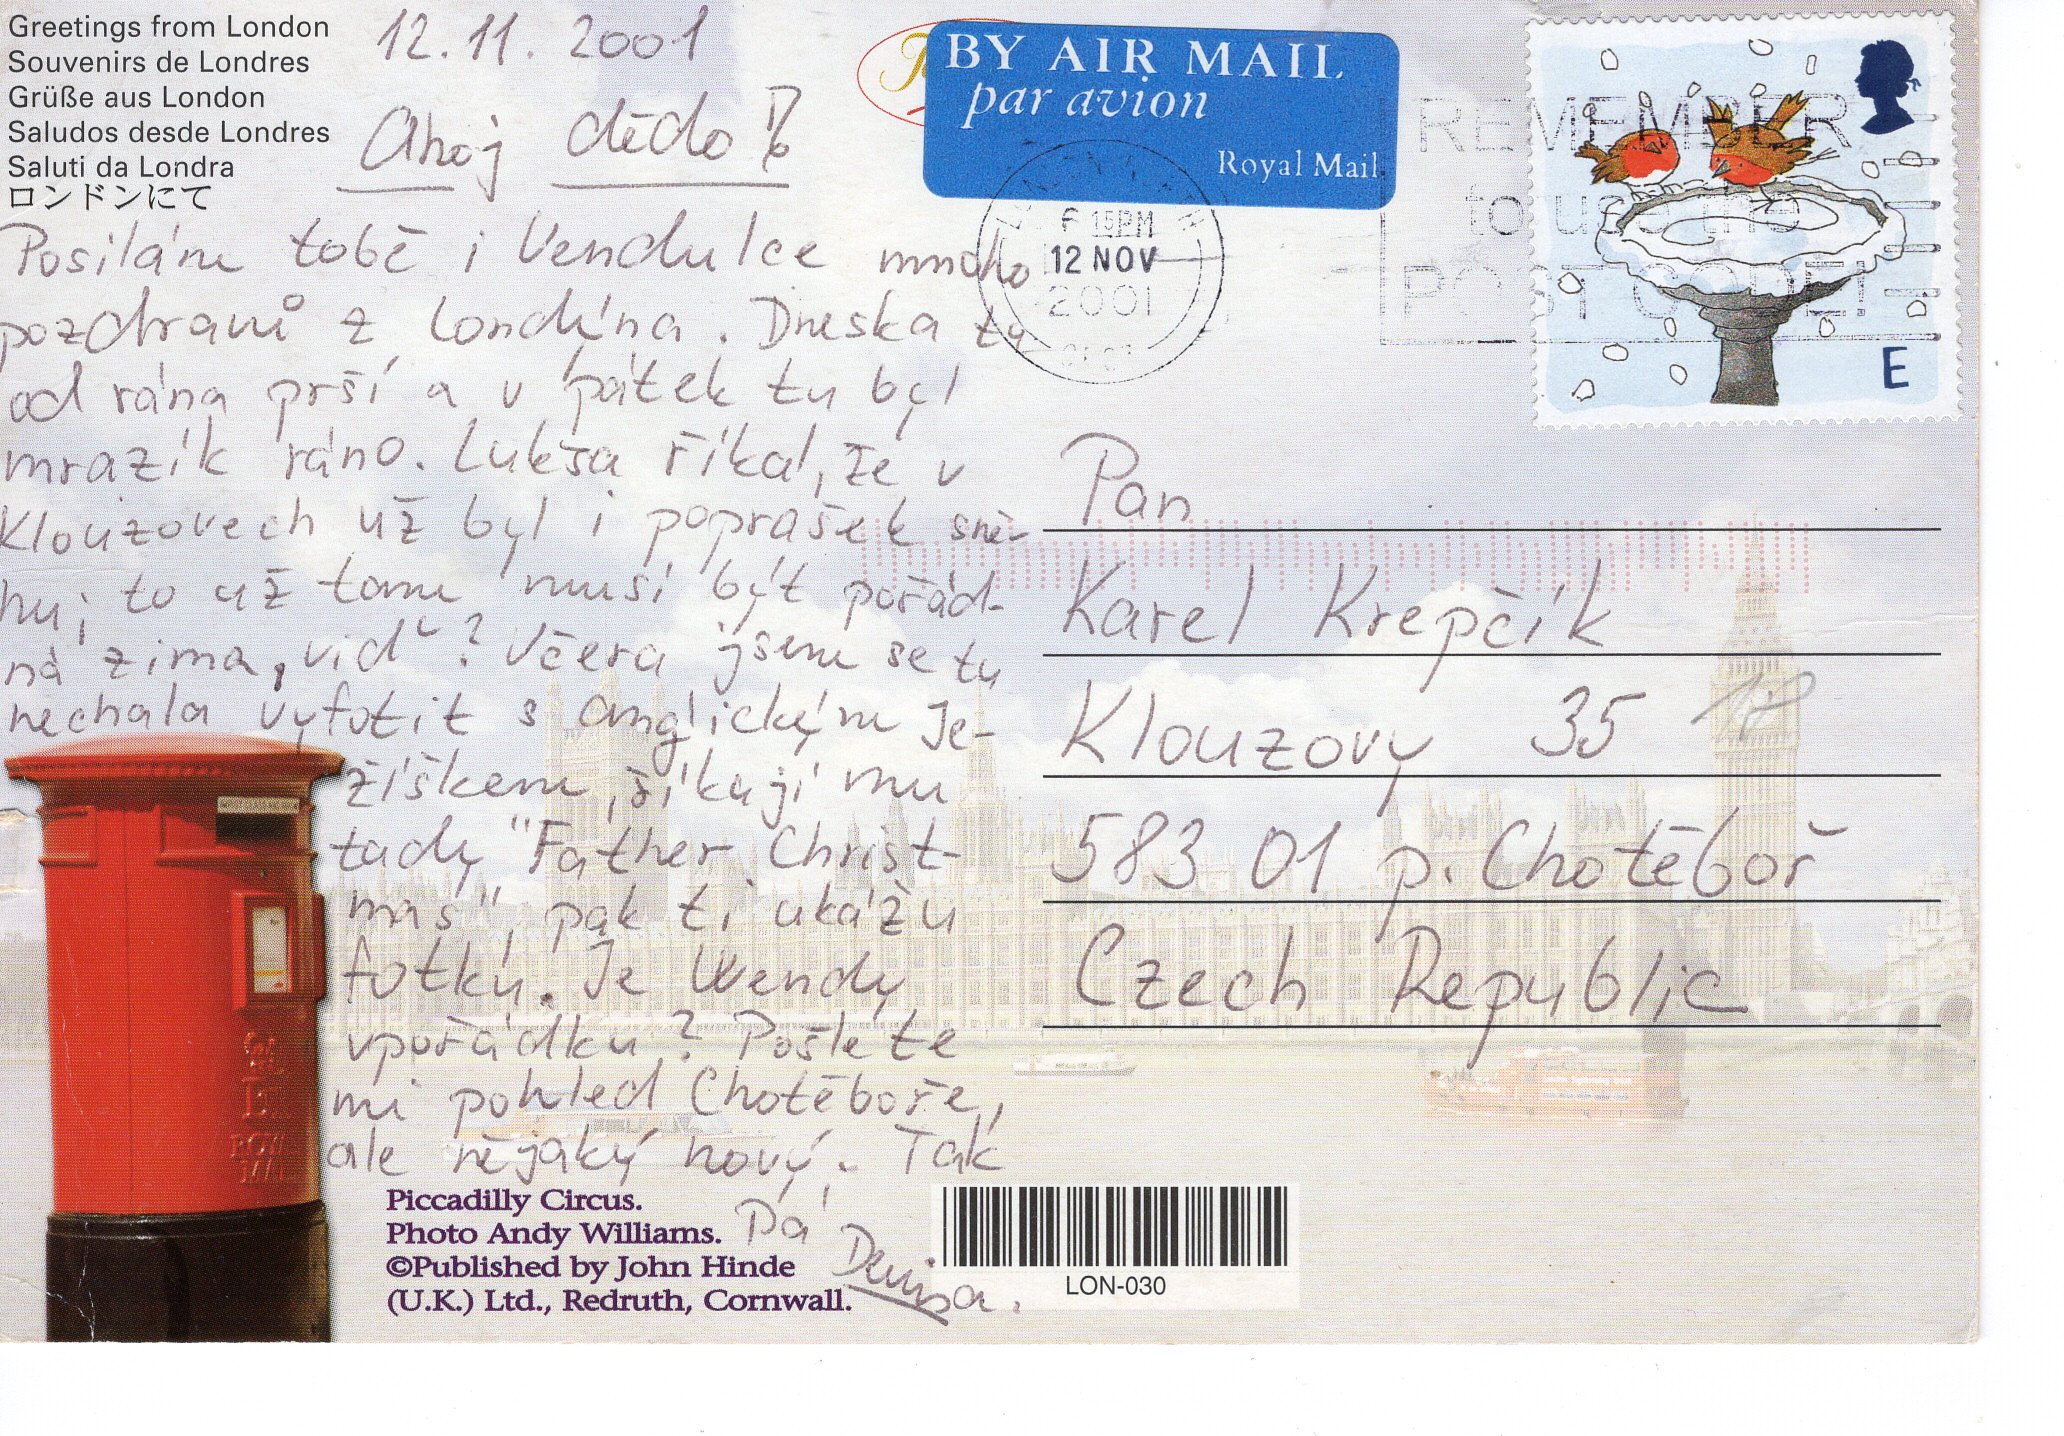 Greetings from London
Souvenirs de Londres
Grüße aus London
Saludos desde Londres
Saluti da Londra
ロンドンにて
12.11.2001
Ahoj dědo!
Posílám tobě i Vendulce mnoho
pozdravů z Londýna. Dneska tu
od rána prší a v pátek tu byl
mrazík ráno. Lukša říkal, že v
Klouzovech už byl i poprašek sně-
hu, to už tam musí být pořád-
ná zima, viď? Včera jsem se tu
nechala vyfotit s anglickým Je-
žíškem, říkají mu
tady "Father Christ-
mas", pak ti ukážu
fotku. Je Wendy
vpořádku? Pošlete
mi pohled Chotěboře,
ale nějaký nový. Tak
Pá
Denisa.
Piccadilly Circus.
Photo Andy Williams.
©Published by John Hinde
(U.K.) Ltd., Redruth, Cornwall.
BY AIR MAIL
par avion
Royal Mail
6 15PM
12 NOV
2001
REMEMBER
to use the
POSTCODE!
E
Pan
Karel Krepčík
Klouzovy 35
583 01 p. Chotěboř
Czech Republic
LON-030